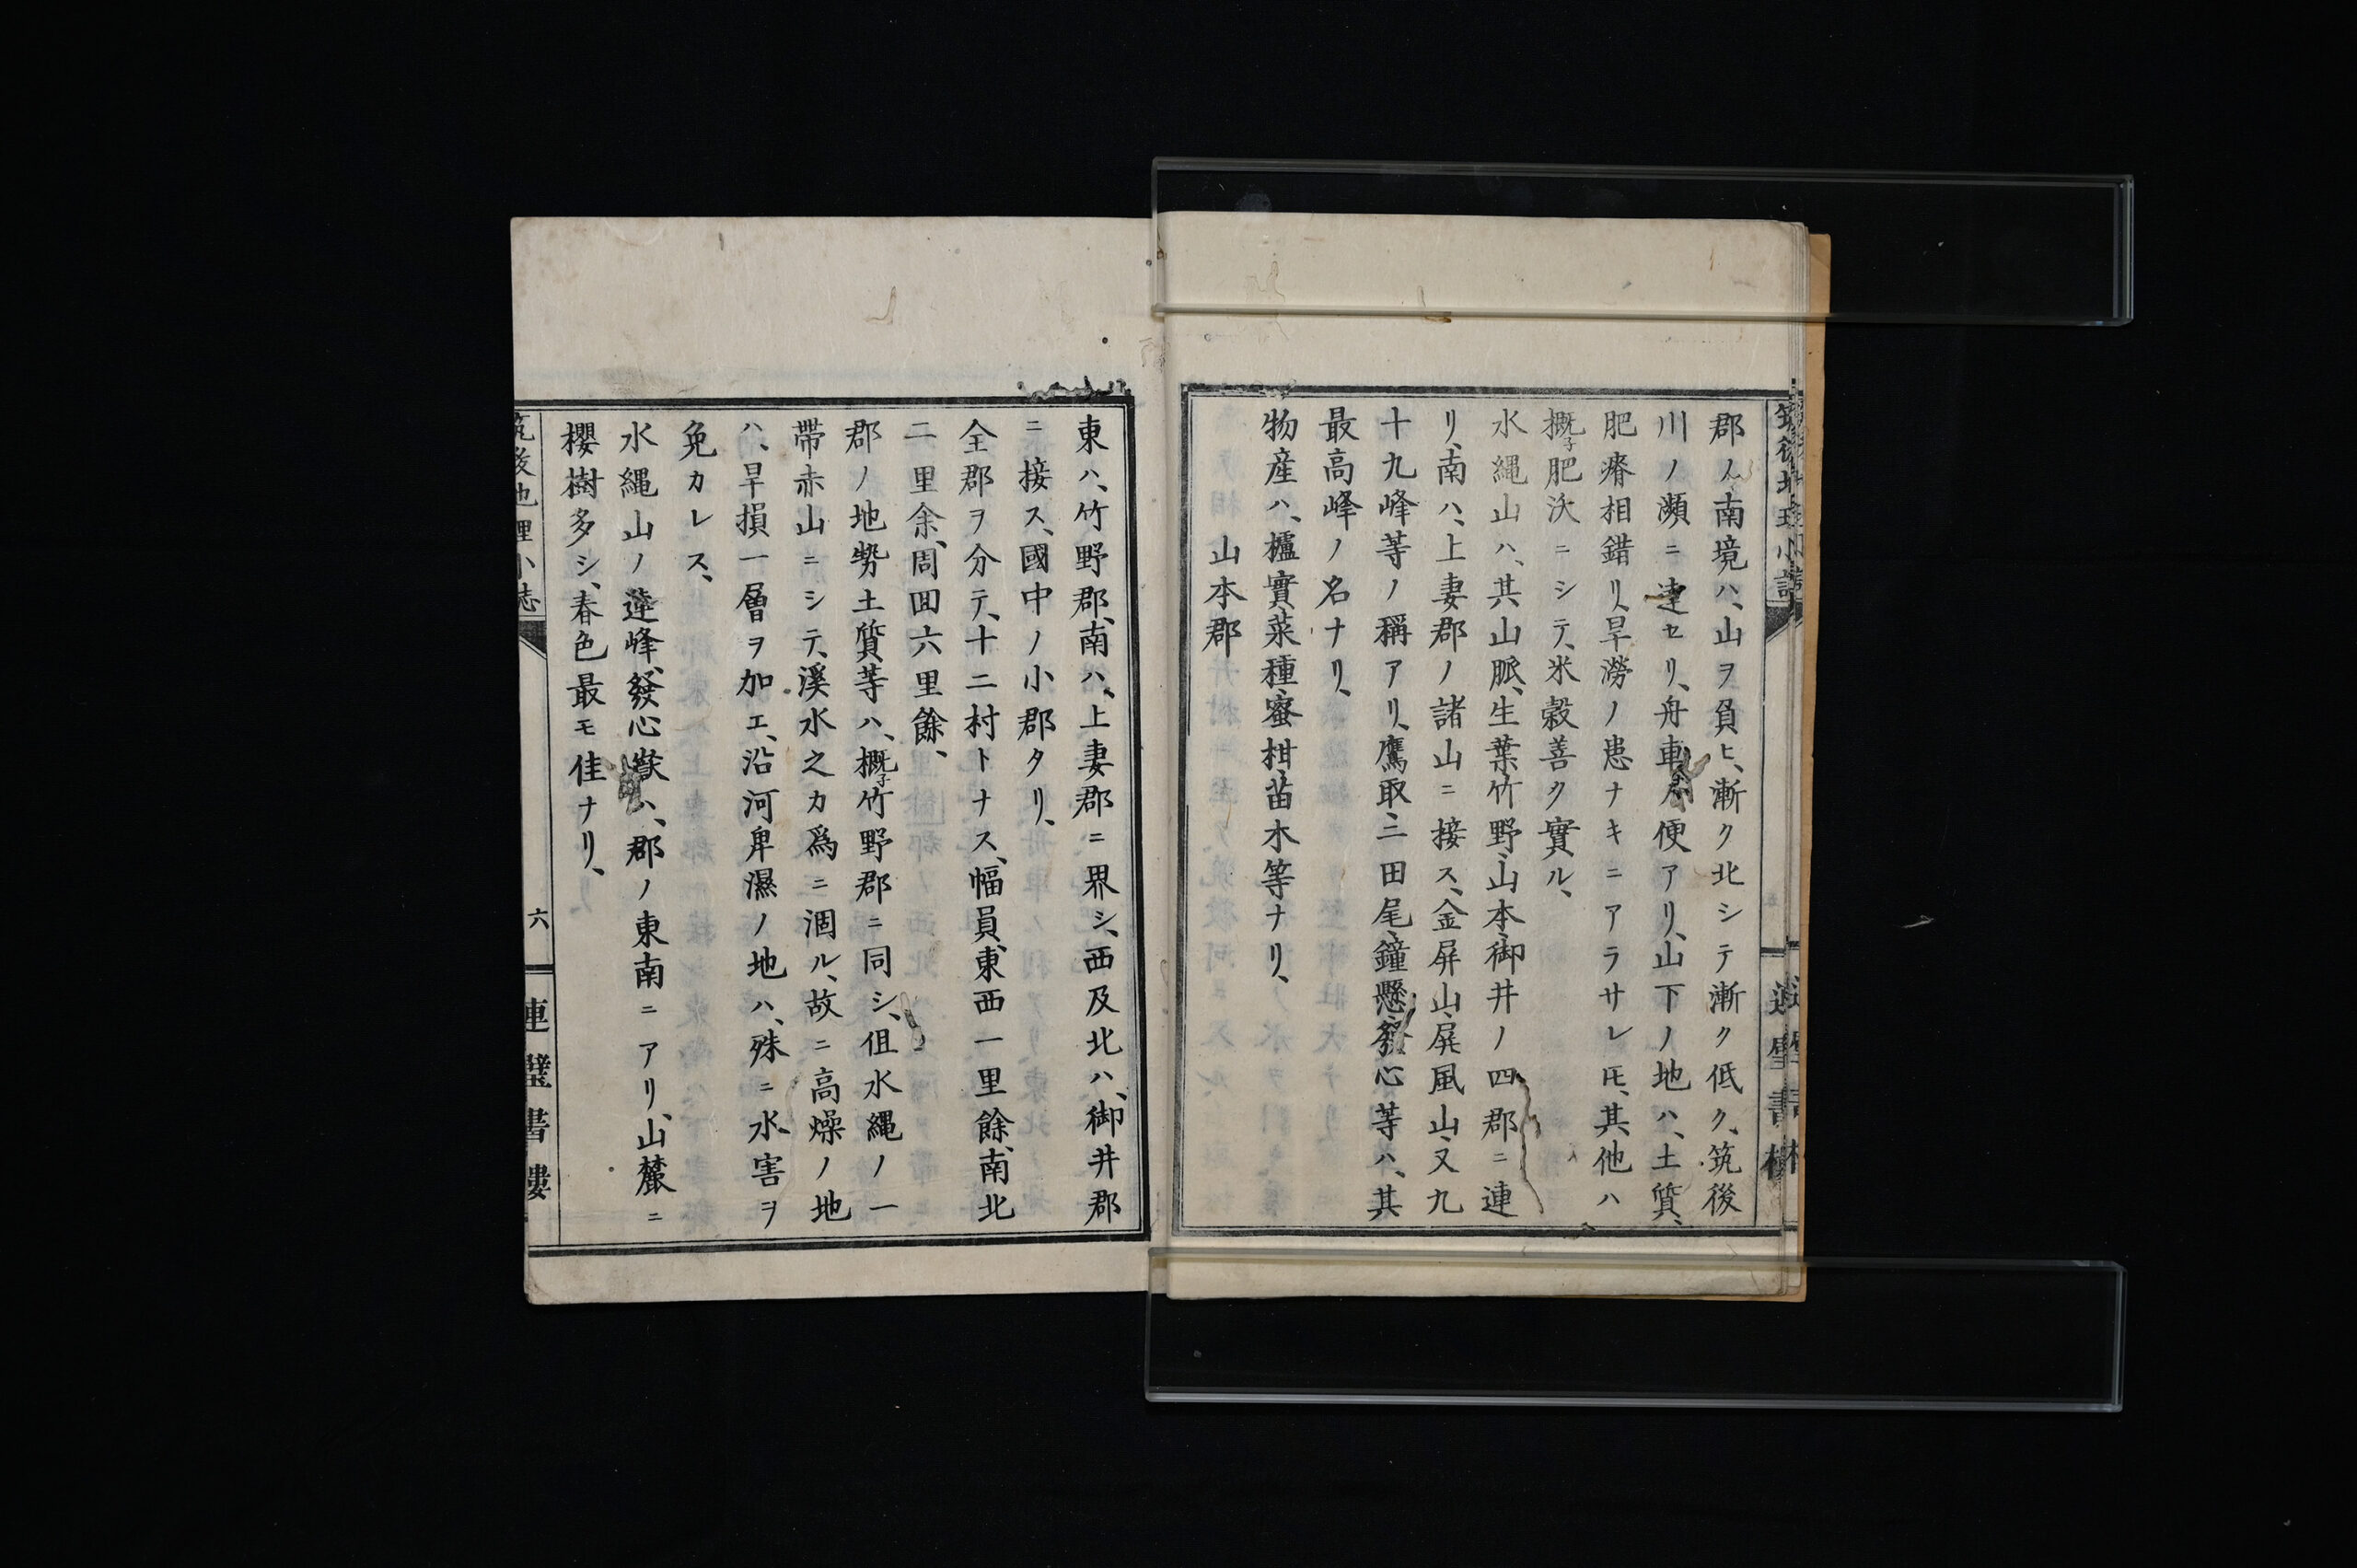 郡ノ、南境ハ、山ヲ負ヒ、漸ク北シテ漸ク低ク、筑後
川ノ瀕ニ達セリ、舟車ノ便アリ、山下ノ地ハ、土質、
肥瘠相錯リ、旱澇ノ患ナキニアラサレ𪜈、其他ハ
概子肥沃ニシテ、米穀善ク實ル、
水縄山ハ、其山脈、生葉竹野、山本、御井ノ四郡ニ連
リ、南ハ、上妻郡ノ諸山ニ接ス、金屏山、屏風山、又九
十九峰等ノ稱アリ、鷹取、三田尾、鐘懸、發心等ハ、其
最高峰ノ名ナリ、
物産ハ、櫨實、菜種、蜜柑、苗木等ナリ、
山本郡
東ハ、竹野郡、南ハ、上妻郡ニ界シ、西及北ハ、御井郡
ニ接ス、國中ノ小郡タリ、
全郡ヲ分テ、十二村トナス、幅員、東西一里餘、南北
二里余、周囬六里餘、
郡ノ地勢土質等ハ、概子竹野郡ニ同シ、但水縄ノ一
帶赤山ニシテ、溪水之カ爲ニ涸ル、故ニ高燥ノ地
ハ、旱損一層ヲ加エ、沿河卑濕ノ地ハ、殊ニ水害ヲ
免カレス、
水縄山ノ峰、發心嶽ハ、郡ノ東南ニアリ、山麓ニ
櫻樹多シ、春色最モ佳ナリ、
筑後地理小誌
六
連璧書樓